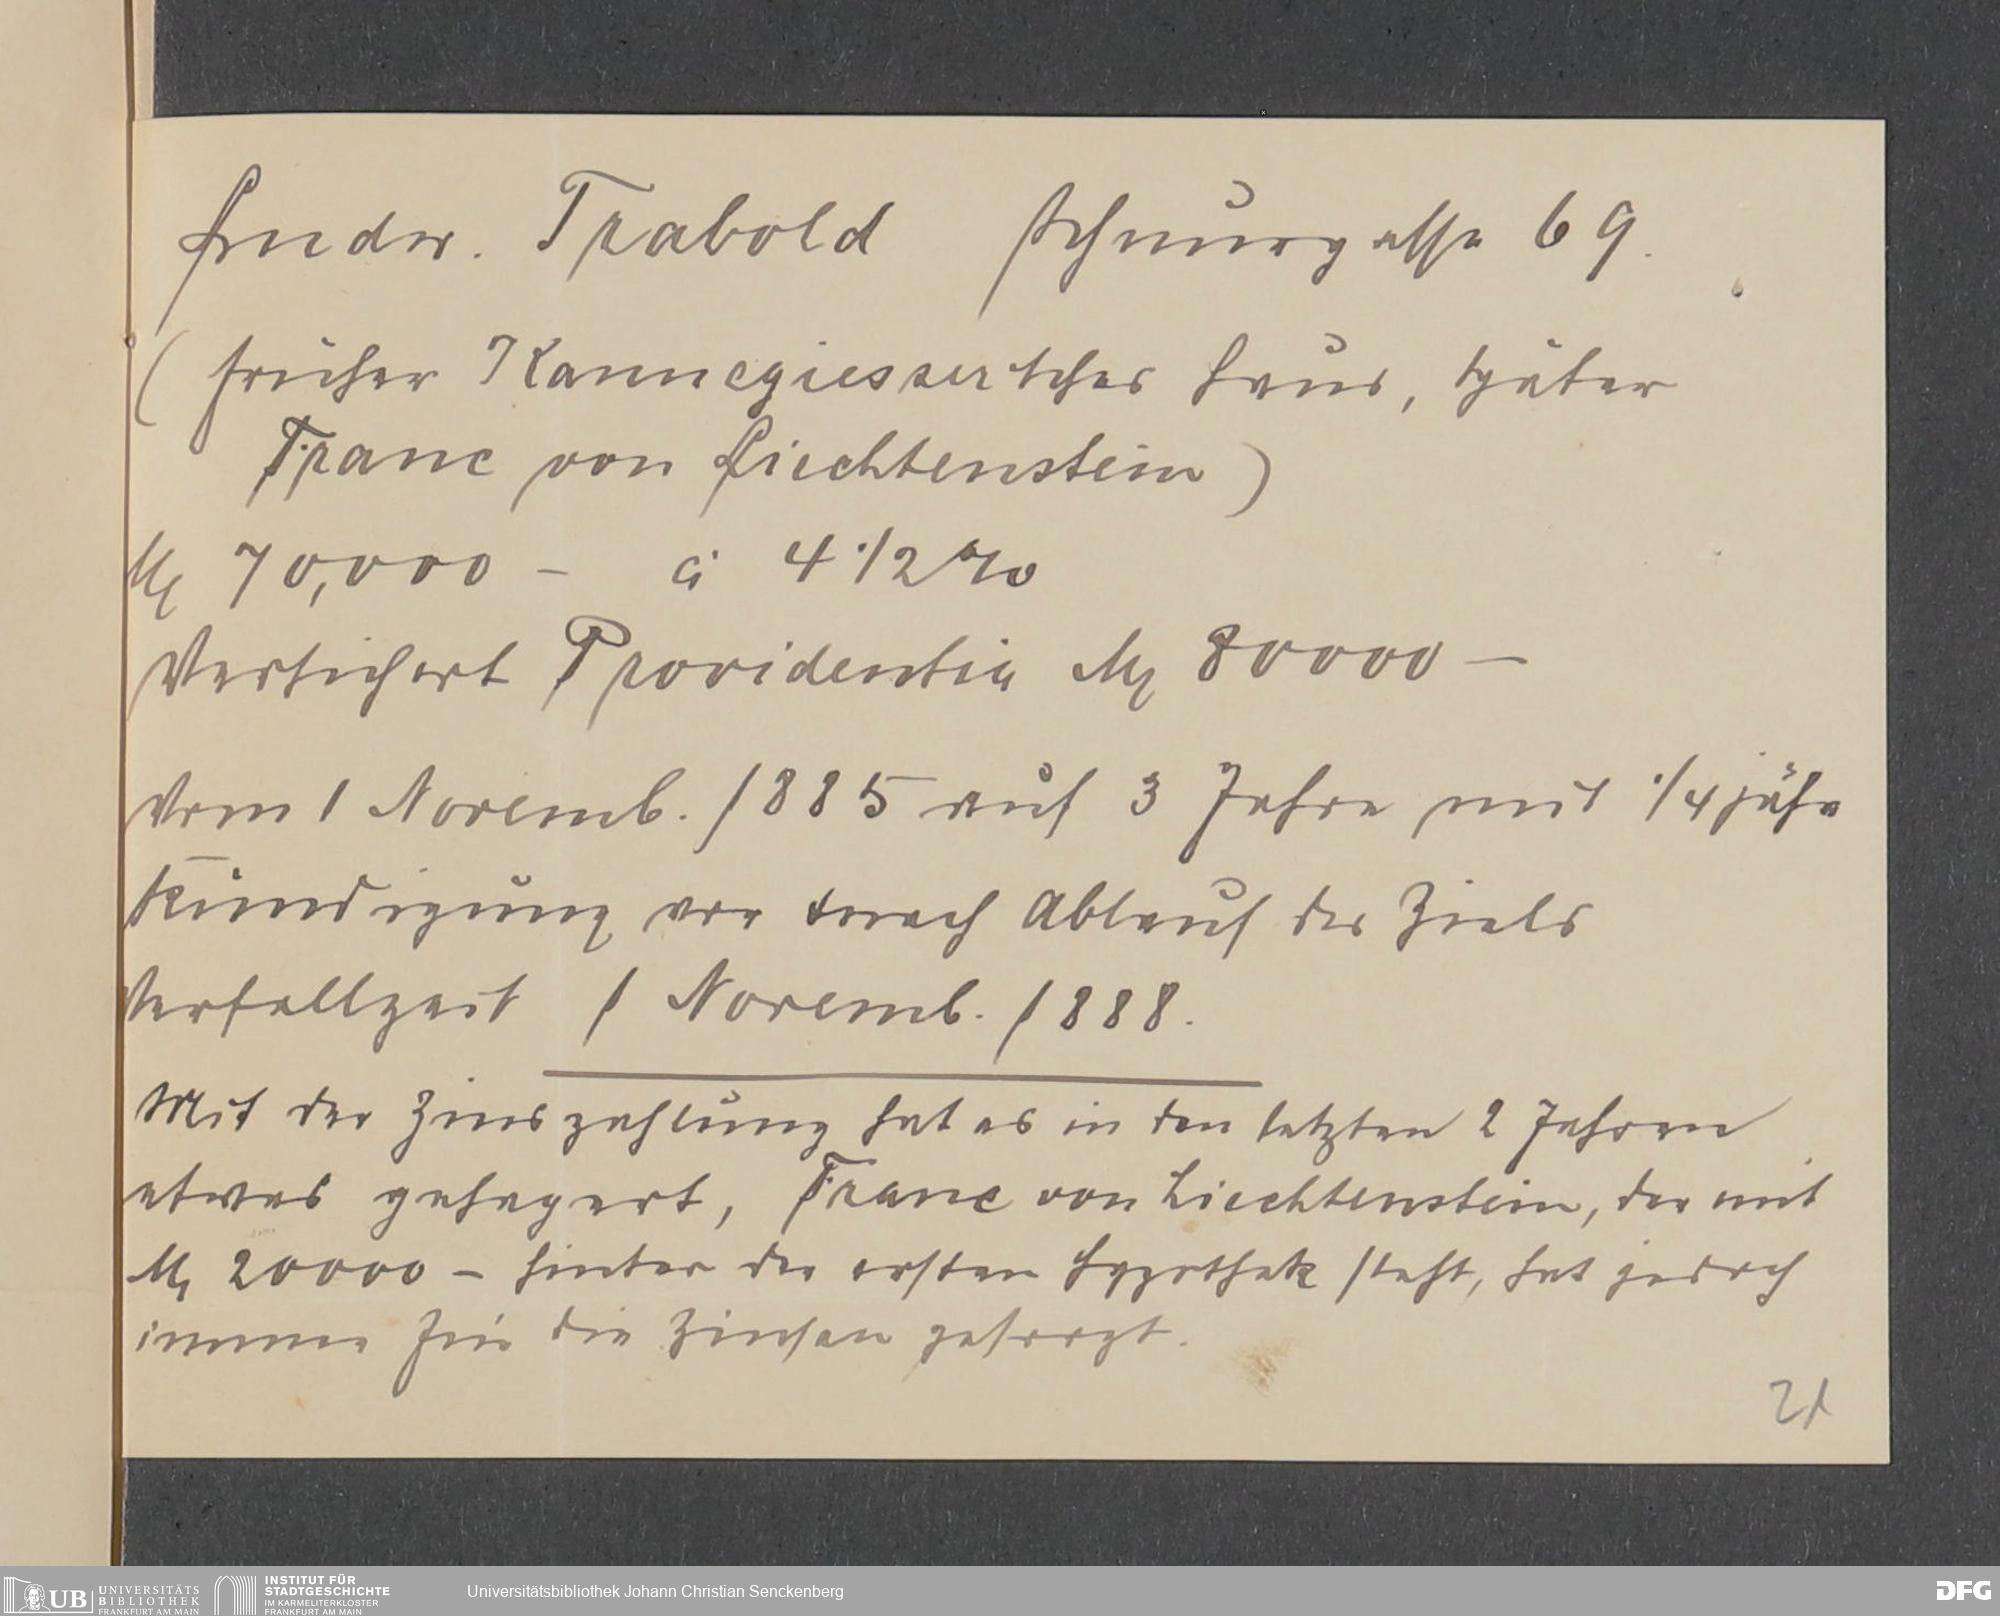 Ludw. Trabold Schnurgasse 69.
(früher Kannegiesser'sches Haus, später
Franc von Liechtenstein)
M 70,000 – à 4 1/2 %
Versichert Providentia M 80000 –
Vom 1 Novemb. 1885 auf 3 Jahre mit 1/4 jähr
Kündigung vor & nach Ablauf des Ziels
Verfallzeit 1 Novemb. 1888.
Mit der Zinszahlung hat es in den letzten 2 Jahren
etwas gehapert, Franc von Liechtenstein, der mit
M 20000 – hinter der ersten Hypothek steht, hat jedoch
immer für die Zinsen gesorgt.
21
UB UNIVERSITÄTS
BIBLIOTHEK
FRANKFURT AM MAIN
INSTITUT FÜR
STADTGESCHICHTE
IM KARMELITERKLOSTER
FRANKFURT AM MAIN
Universitätsbibliothek Johann Christian Senckenberg
DFG